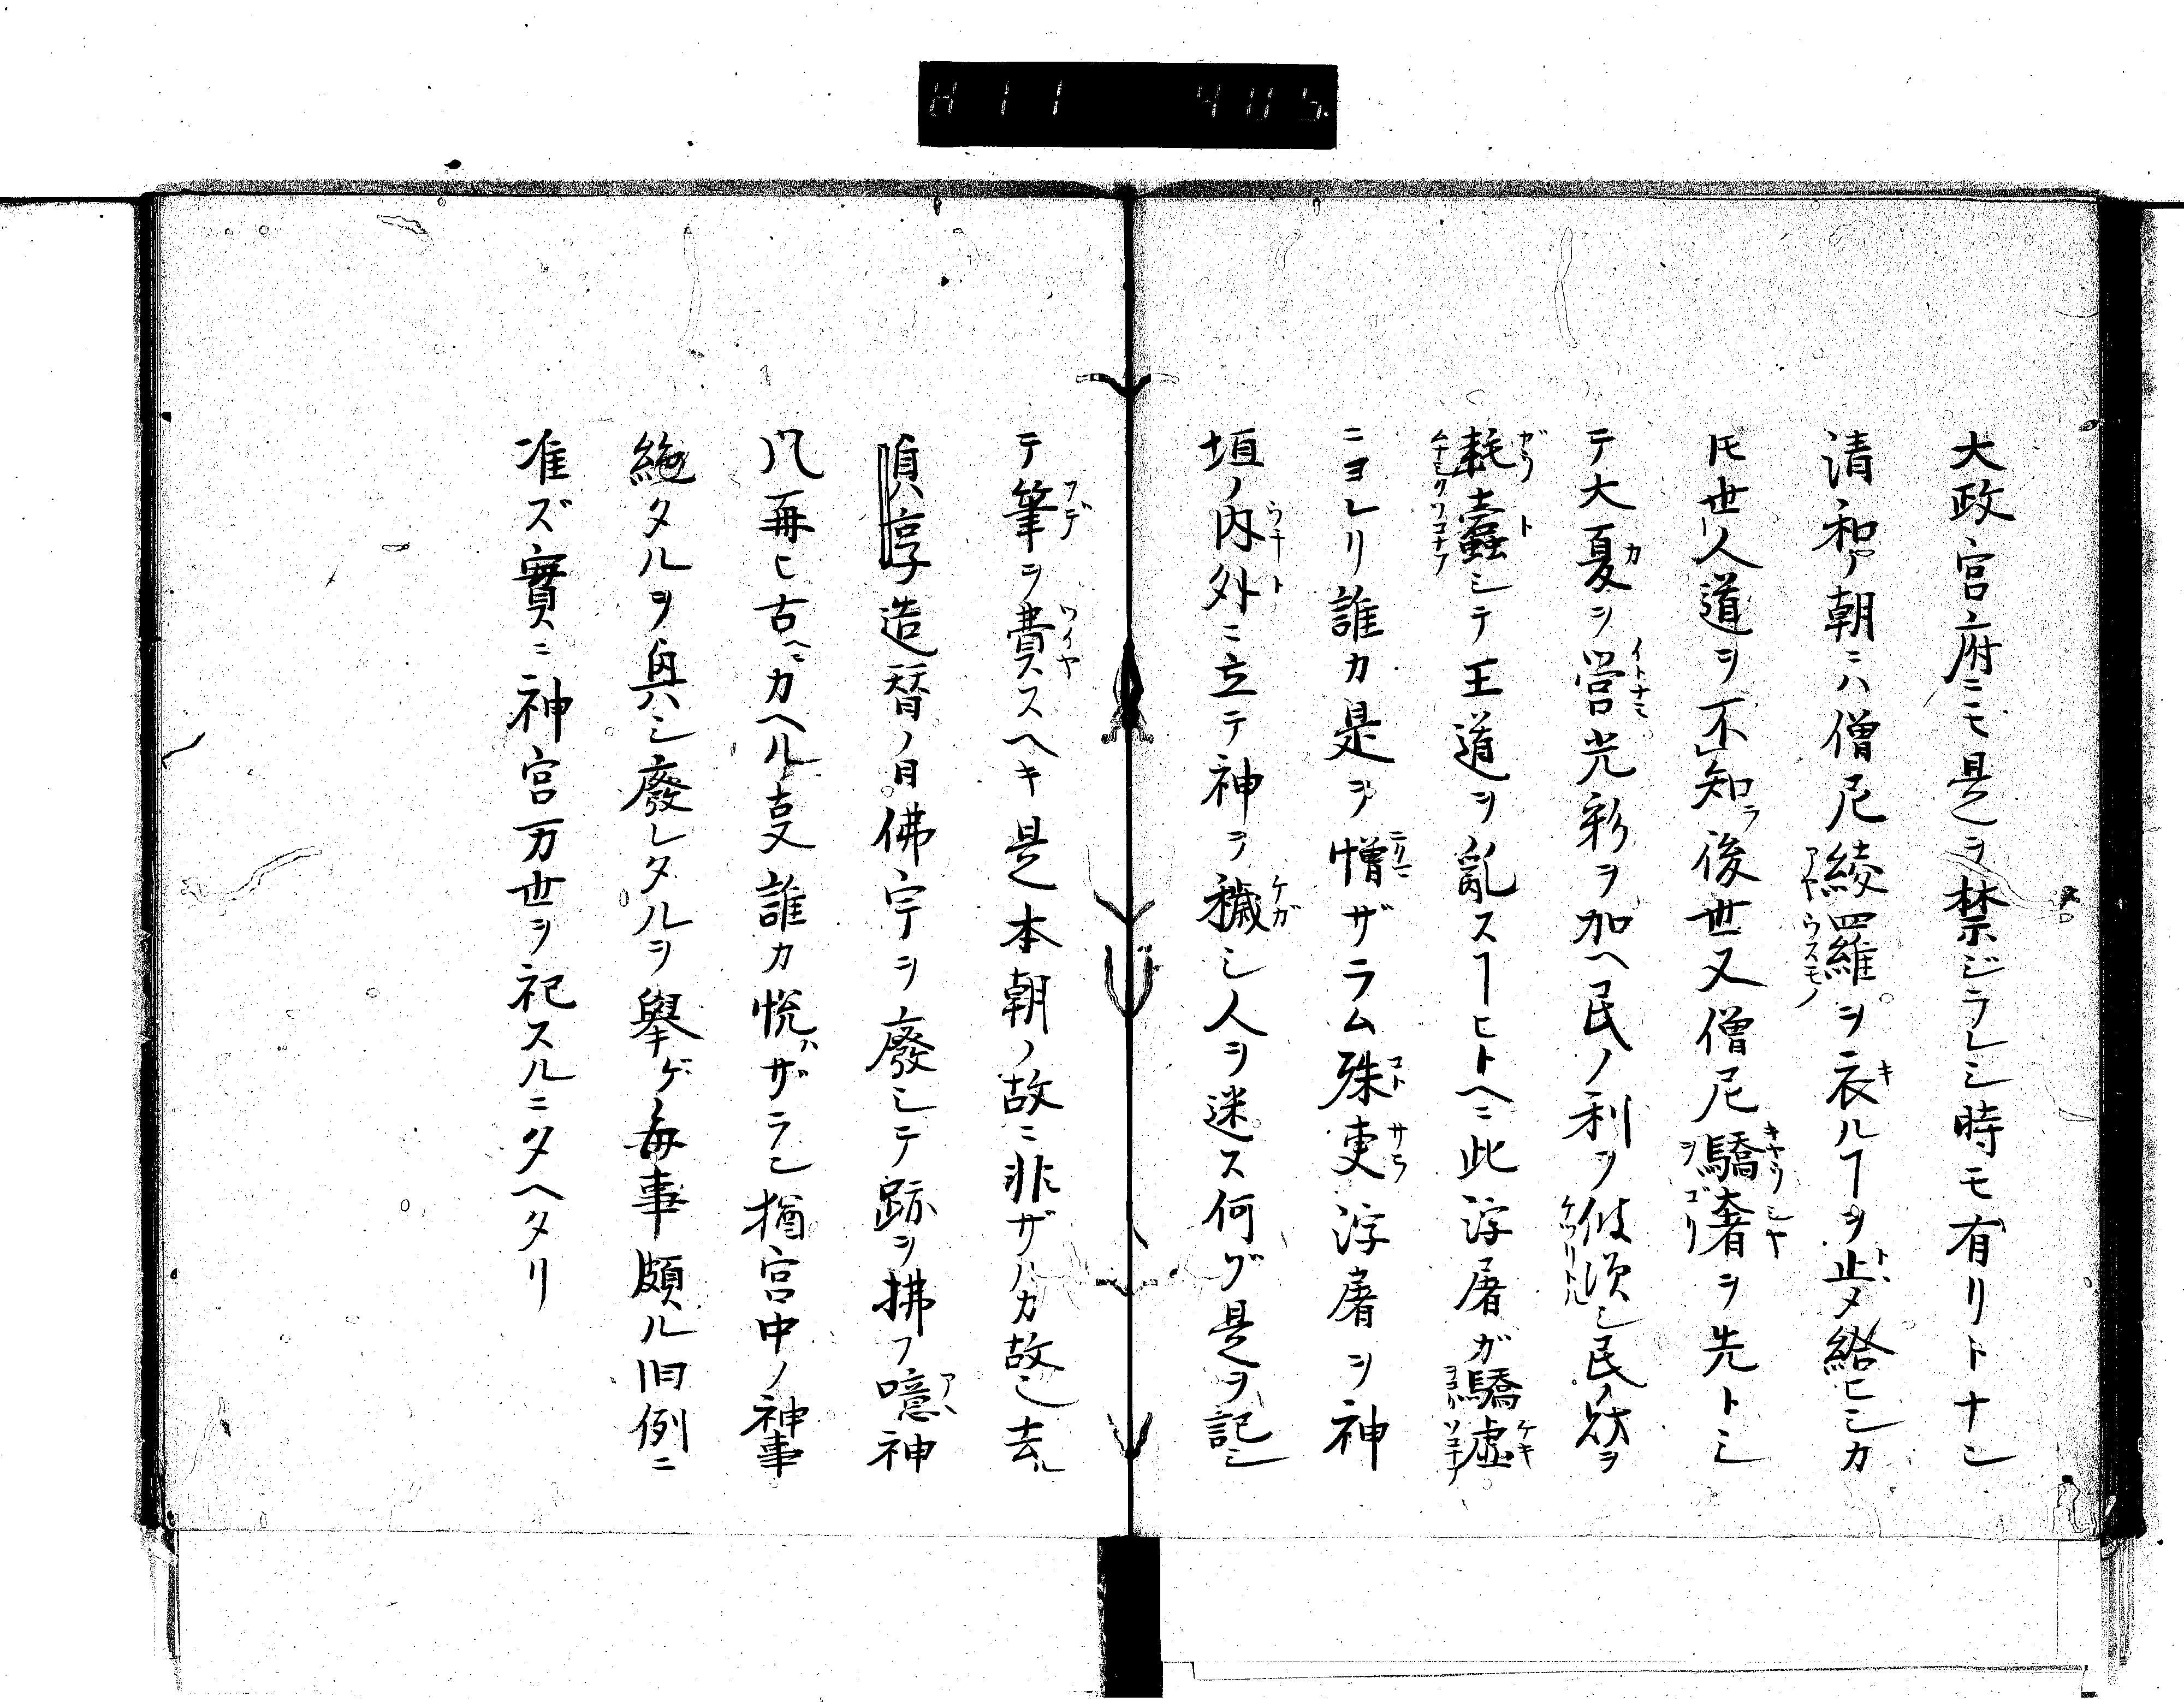 H11 405
大政官府ニモ是ヲ禁ジラレシ時モ有リトナン
清和ノ朝ニハ僧尼綾羅ヲ衣ルヿヲ止メ給ヒシカ
𪜈世人道ヲ不知ラ後世又僧尼驕奢ヲ先トシ
テ大夏ヲ営光彩ヲ加ヘ民ノ利ヲ シ民ノ財ヲ
耗蠹シテ王道ヲ亂スヿヒトヘニ此浮屠ガ驕虚
ニヨレリ誰カ是ヲ憎ザラム殊更浮屠ヲ神
垣ノ内外ニ立テ神ヲ穢シ人ヲ迷ス何ゾ是ヲ記シ
テ筆ヲ費スヘキ是本朝ノ故ニ非ザルカ故ニ去ル
貞享造替ノ日佛宇ヲ廢シテ跡ヲ拂フ噫神
風再ヒ古ヘニカヘル叓誰カ悦ハザラン猶宮中ノ神事
絶タルヲ興シ廢レタルヲ擧ゲ毎事頗ル旧例ニ
准ズ實ニ神宮万世ヲ祀スルニタヘタリ